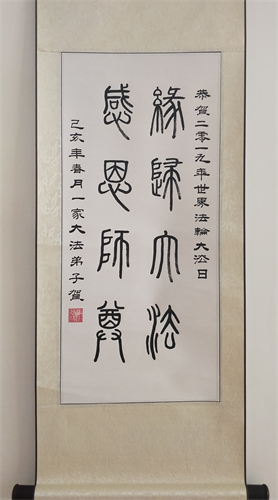 恭贺二零一九年世界法輪大法日
緣歸大法
感恩師尊
己亥年春月一家大法弟子賀